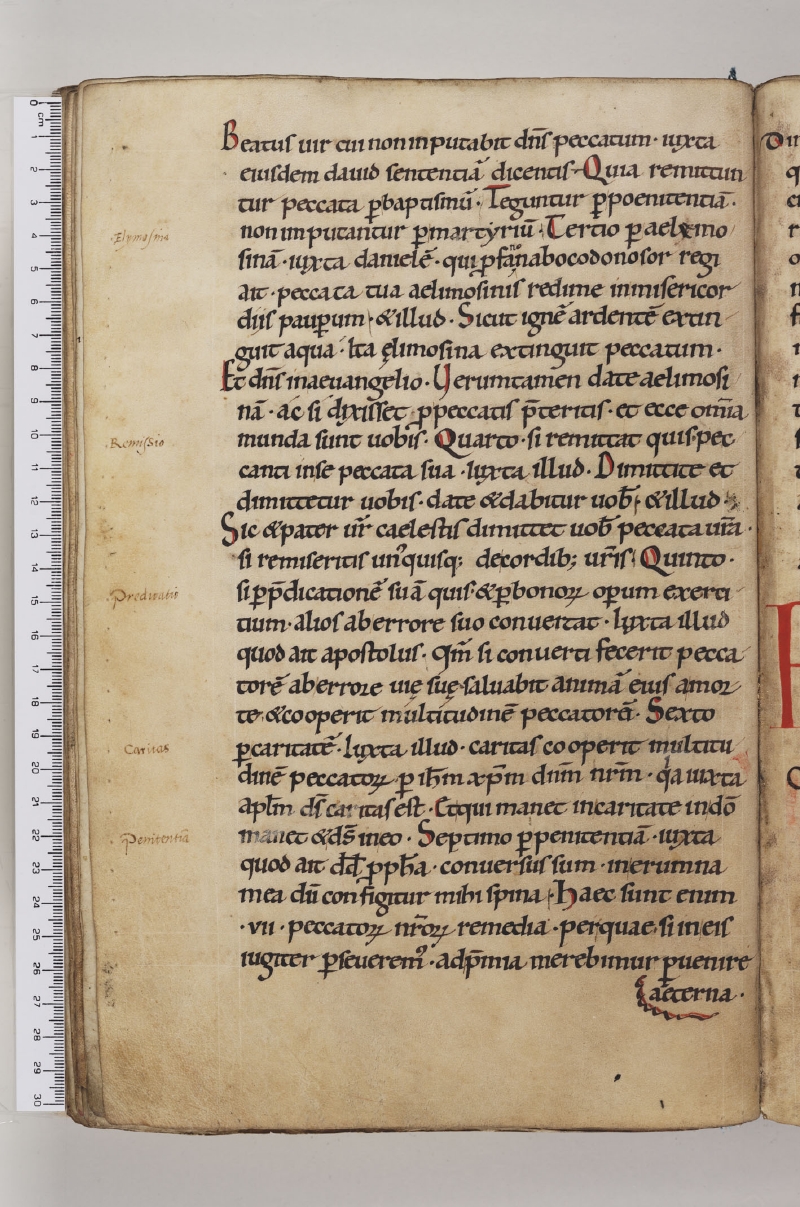 Beatus uir cui non inputabit dn̄s peccatum · iuxta
eiusdem dauid sententiā dicentis · Quia remittun
tur peccata ꝑ baptismū · Teguntur ꝑ poenitentiā ·
non imputantur ꝑ martyriū · Tertio ꝑ aelymo
Elymosina
sinā · iuxta danielē · qui ꝓfanabocodonosor regi
ait · peccata tua aelimosinis redime in misericor
diis pauꝑum · & illud · Sicut ignē ardentē extin
guit aqua · Ita elimosina extinguit peccatum ·
Et dn̄s in aeuangelio · Uerumtamen date aelimosi
nā · ac si dixisset ꝓ peccatis p̄teritis · et ecce om̄ia
Remissio
munda sunt uobis · Quarto · si remittat quis pec
canti in se peccata sua · Iuxta illud · Dimittite et
dimittetur uobis · date & dabitur uob̄ · & illud ·
Sic & pater ur̄ caelestis dimittet uob̄ peccata ur̄a ·
si remiseritis un'quisq; de cordib; ur̄is · Quinto ·
Predicatio
si ꝑ p̄dicationē suā quis & ꝑ bonoꝝ operum exerci
tium · alios ab errore suo conuertat · Iuxta illud
quod ait apostolus · qm̄ si conuerti fecerit pecca
torē ab errore uię suę saluabit animā eius a mor
te · & cooperit multitudinē peccatorū · Sexto
Caritas
ꝑ caritatē · Iuxta illud · caritas cooperit multitu
dinē peccatoꝝ ꝑ ih̄m xp̄m dn̄m nr̄m · qa iuxta
apl̄m ds̄ caritas est · Et qui manet in caritate in dō
Penitentiā
manet & ds̄ in eo · Septimo ꝑ penitentiā · iuxta
quod ait dd̄ ꝓph̄a · conuersus sum · in erumna
mea dū configitur mihi spina · Haec sunt enim
· vii · peccatoꝝ nr̄oꝝ remedia · per quae si in eis
iugiter ꝑseuerem' · ad p̄mia merebimur ꝑuenire
aeterna ·